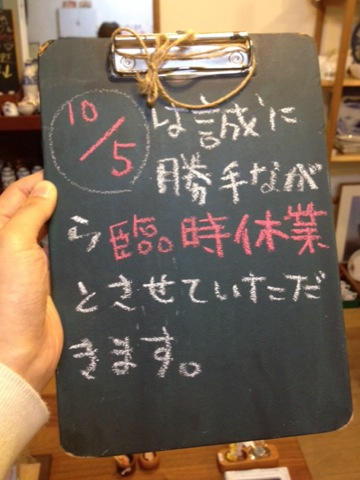 10/5は誠に
勝手なが
ら臨時休業
とさせていただ
きます。